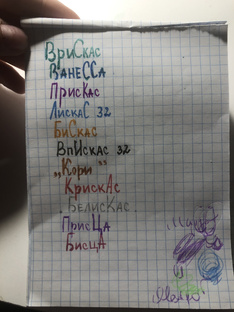 ВриСкас
ВанеССа
ПрисКас
ЛискаС 32
БиСкас
ВпИскас 32
„Кори”
КрискАс
БелисКас.
ПрисЦа
БисцА